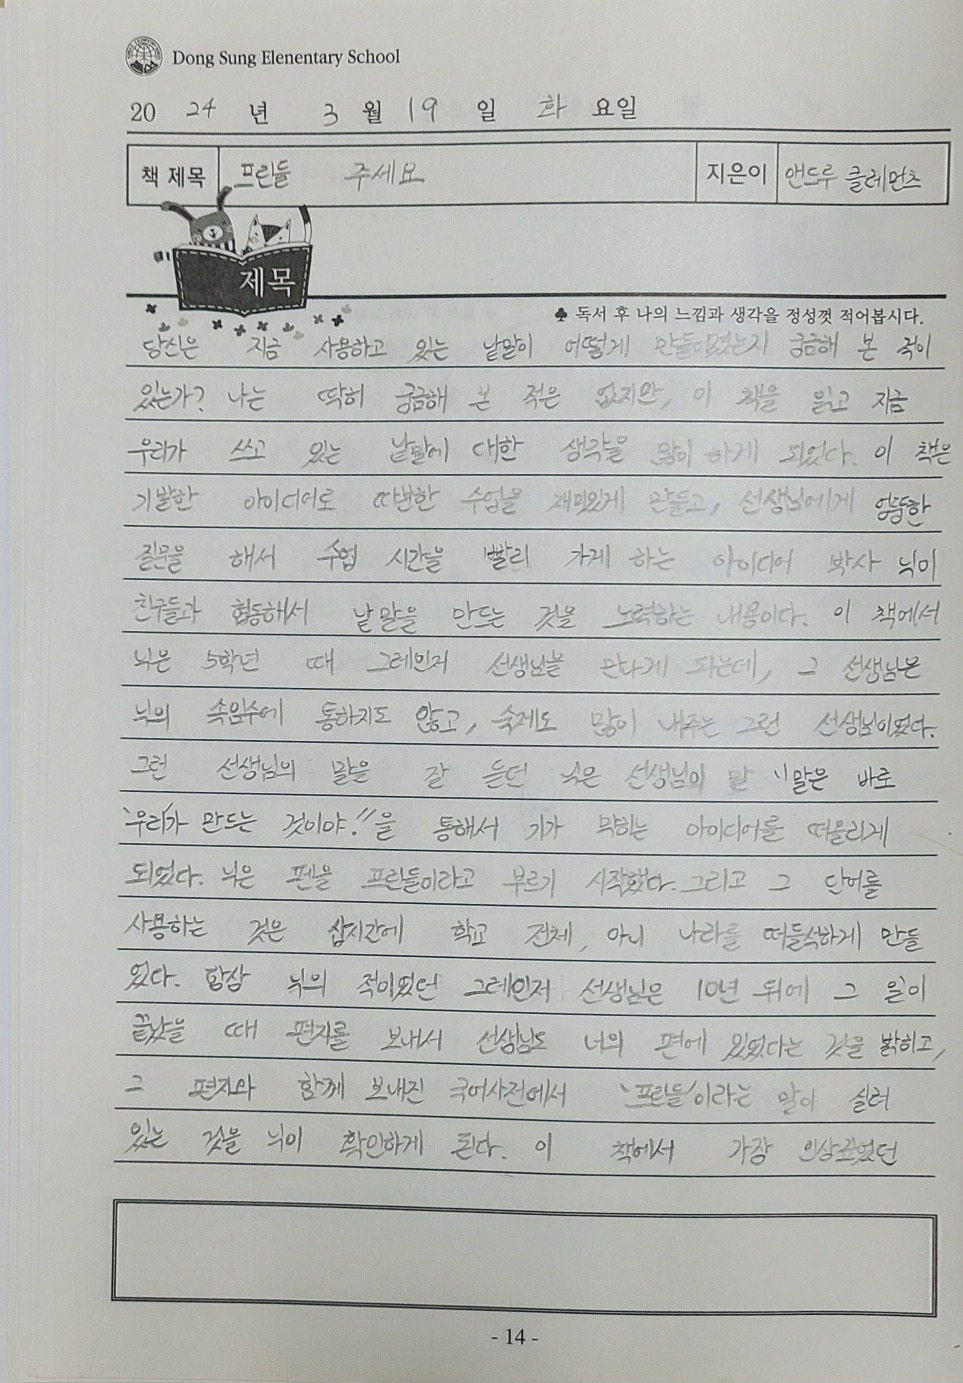 Dong Sung Elenentary School
20 24 년 3 월 19 일 화 요일
책 제목 프린들 주세요 지은이 앤드루 클레먼츠
제목
♣ 독서 후 나의 느낌과 생각을 정성껏 적어봅시다.
당신은 지금 사용하고 있는 낱말이 어떻게 만들어졌는지 궁금해 본 적이
있는가? 나는 딱히 궁금해 본 적은 없지만, 이 책을 읽고 지금
우리가 쓰고 있는 낱말에 대한 생각을 많이 하게 되었다. 이 책은
기발한 아이디어로 따분한 수업을 재미있게 만들고, 선생님에게 엉뚱한
질문을 해서 수업 시간을 빨리 가게 하는 아이디어 박사 닉이
친구들과 협동해서 낱말을 만드는 것을 노력하는 내용이다. 이 책에서
닉은 5학년 때 그레인저 선생님을 만나게 되는데, 그 선생님은
닉의 속임수에 통하지도 않고, 숙제도 많이 내주는 그런 선생님이었다.
그런 선생님의 말을 잘 듣던 닉은 선생님의 말 "말은 바로
우리가 만드는 것이야!"을 통해서 기가 막히는 아이디어를 떠올리게
되었다. 닉은 펜을 프린들이라고 부르기 시작했다. 그리고 그 단어를
사용하는 것은 삽시간에 학교 전체, 아니 나라를 떠들석하게 만들
었다. 항상 닉의 적이었던 그레인저 선생님은 10년 뒤에 그 일이
끝났을 때 편지를 보내서 선생님도 너의 편에 있었다는 것을 밝히고,
그 편지와 함께 보내진 국어사전에서 '프린들'이라는 말이 실려
있는 것을 닉이 확인하게 된다. 이 책에서 가장 인상깊었던
- 14 -